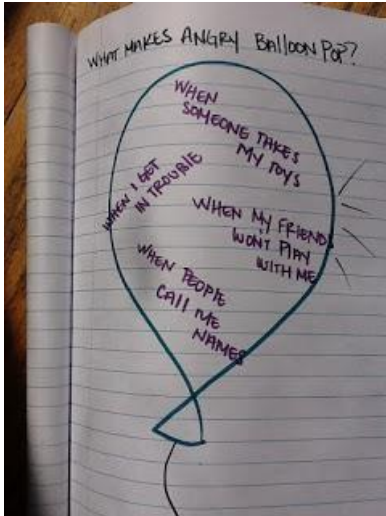 WHAT MAKES ANGRY BALLOON POP?
WHEN
SOMEONE TAKES
MY TOYS
WHEN I GET
IN TROUBLE
WHEN MY FRIENDS
WON'T PLAY
WITH ME
WHEN PEOPLE
CALL ME
NAMES